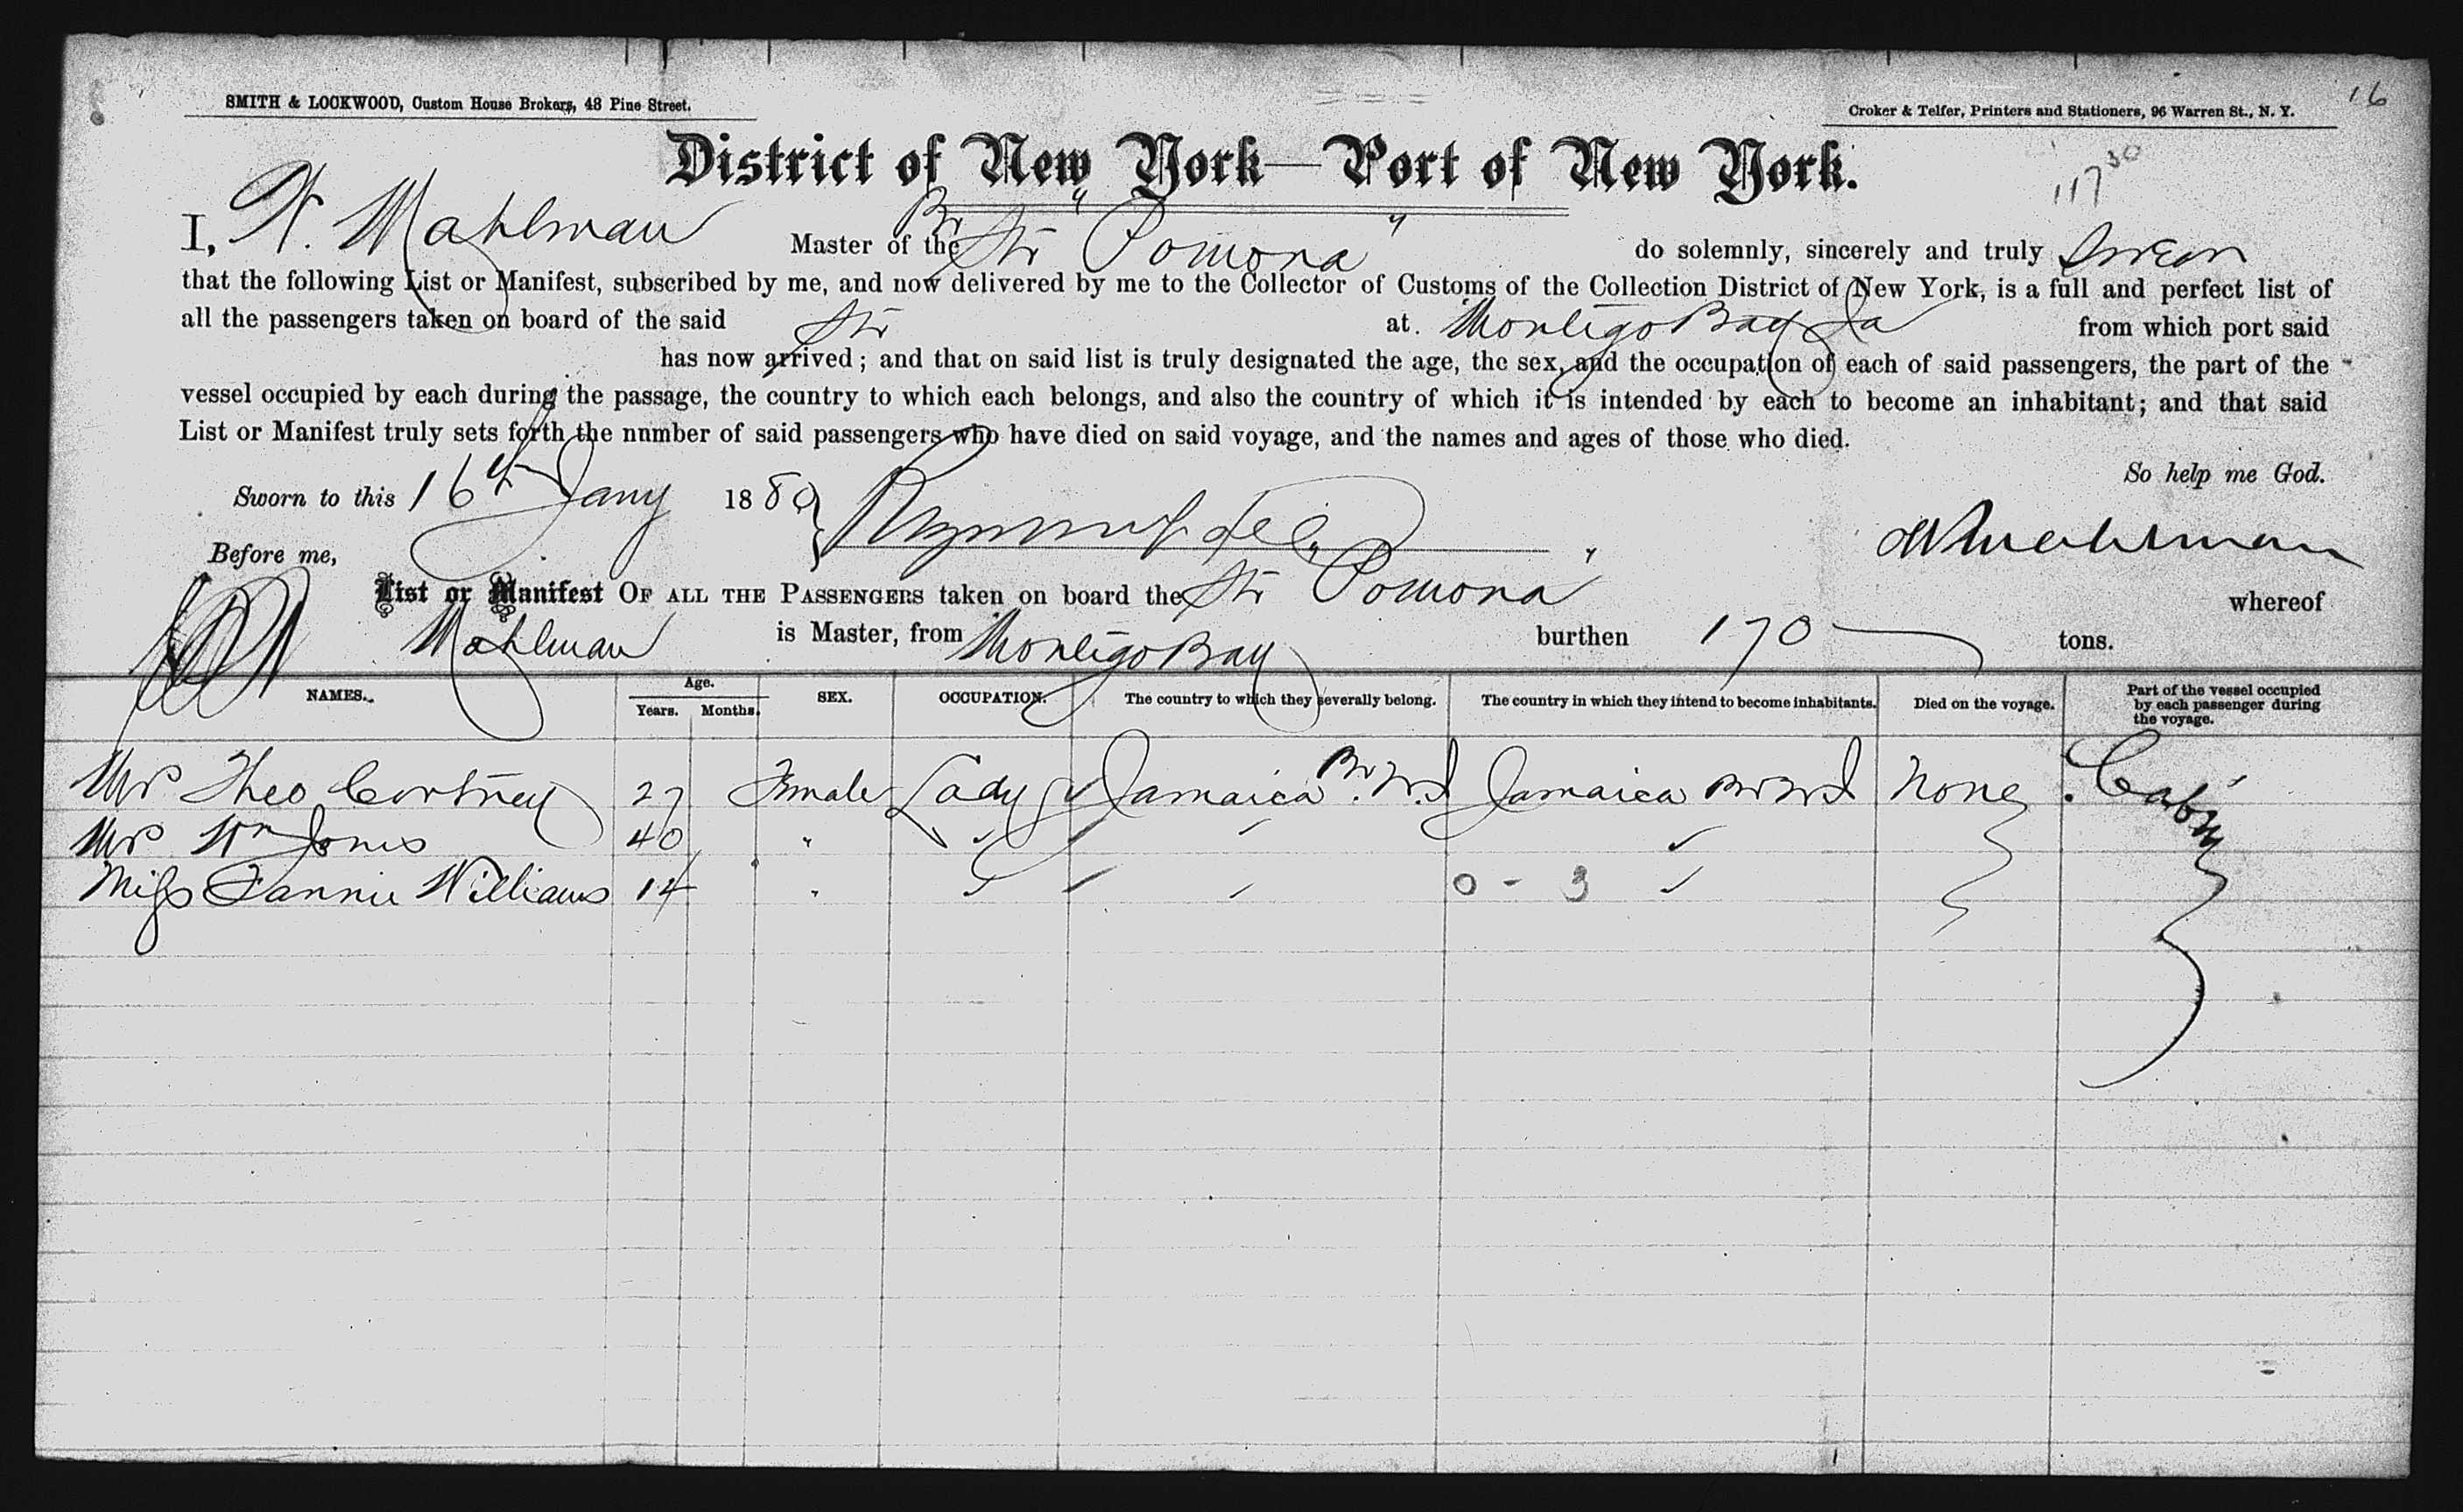 16
SMITH & LOCKWOOD, Custom House Brokers, 48 Pine Street.
Croker & Telfer, Printers and Stationers, 96 Warren St., N. Y.
District of New York—Port of New York.
117 30
I, W. Mahlman Master of the Br Str "Pomona" do solemnly, sincerely and truly Swear
that the following List or Manifest, subscribed by me, and now delivered by me to the Collector of Customs of the Collection District of New York, is a full and perfect list of
all the passengers taken on board of the said Str at. Montigo Bay Ja from which port said
has now arrived; and that on said list is truly designated the age, the sex, and the occupation of each of said passengers, the part of the
vessel occupied by each during the passage, the country to which each belongs, and also the country of which it is intended by each to become an inhabitant; and that said
List or Manifest truly sets forth the number of said passengers who have died on said voyage, and the names and ages of those who died.
So help me God.
Sworn to this 16th Jany 1880
WMahlman
Before me,
List or Manifest OF ALL THE PASSENGERS taken on board the Str "Pomona" whereof
Mahlman is Master, from Montigo Bay burthen 170 tons.
NAMES. Age. Years. Months. SEX. OCCUPATION. The country to which they severally belong. The country in which they intend to become inhabitants. Died on the voyage. Part of the vessel occupied by each passenger during the voyage.
Mrs Theo Cortney 27 Female Lady Jamaica Br. W.I Jamaica Br W I None Cabin
Mrs Wm Jones 40 "
Miss Fannie Williams 14 " 0 - 3